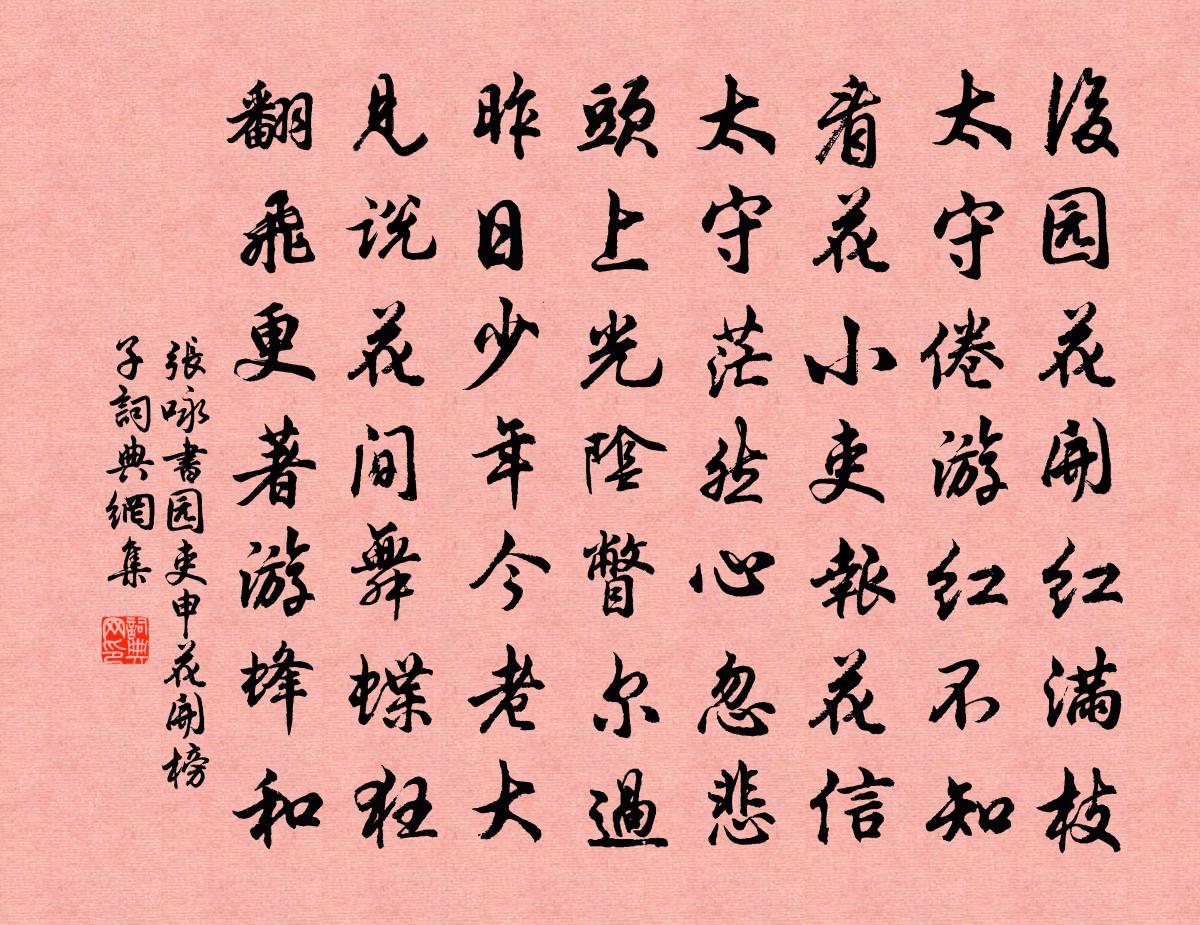 後园花開红满枝
太守倦游红不知
看花小吏報花信
太守茫然心忽悲
頭上光陰瞥尔過
昨日少年今老大
見说花间舞蝶狂
翻飛更著游蜂和
張咏書园吏申花開榜
子詞典網集
詞典网印